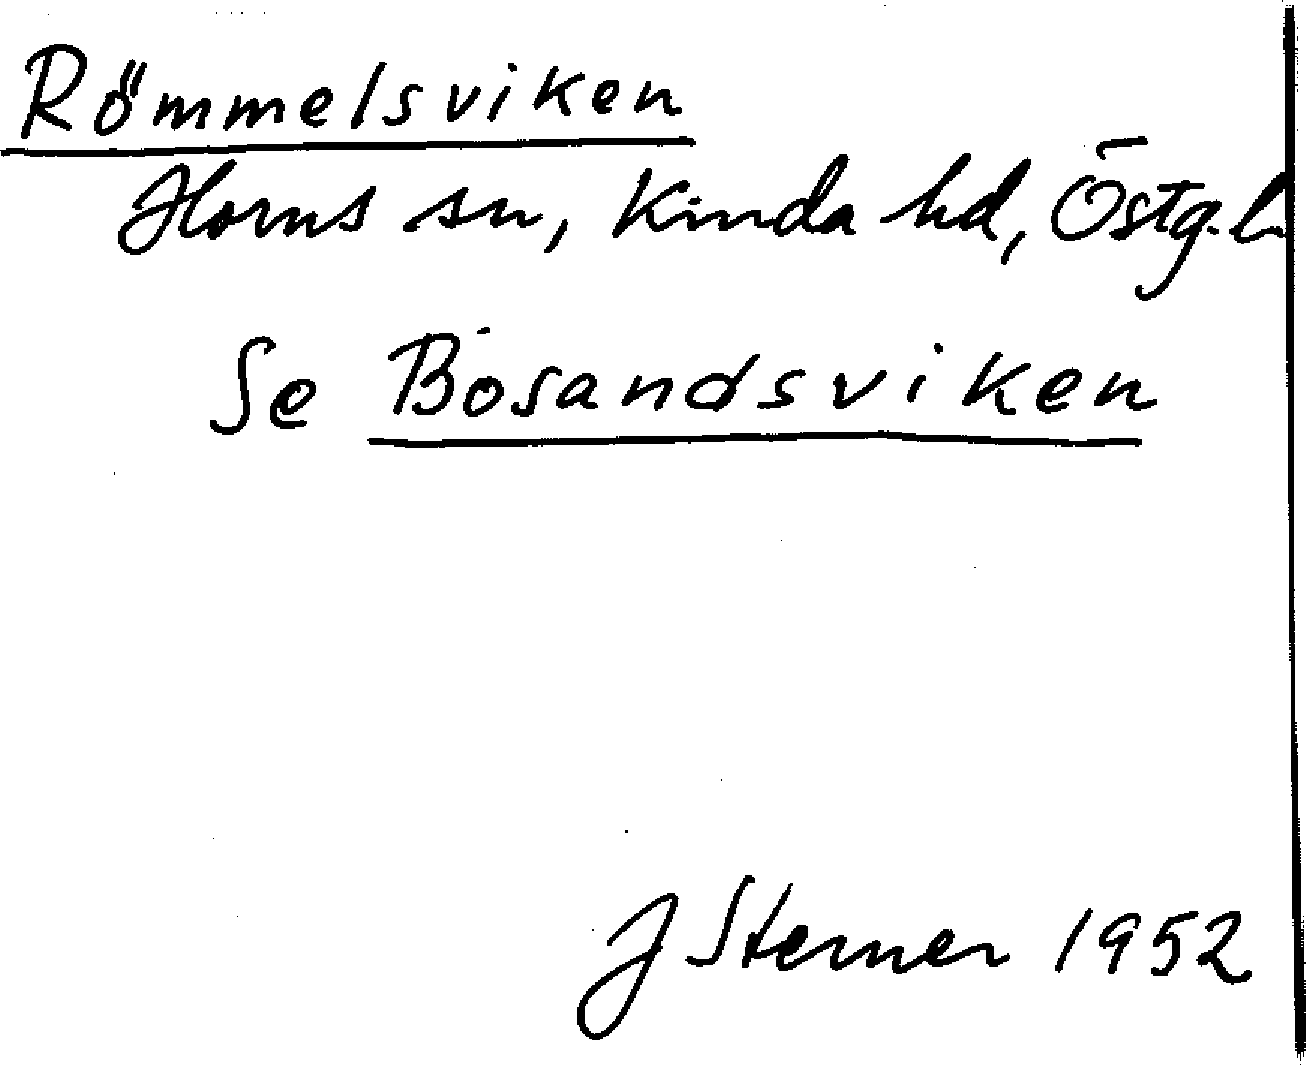 Römmelsviken
Horns sn, Kinda hd, Östg. l.
Se Bosandsviken
J Sterner 1952